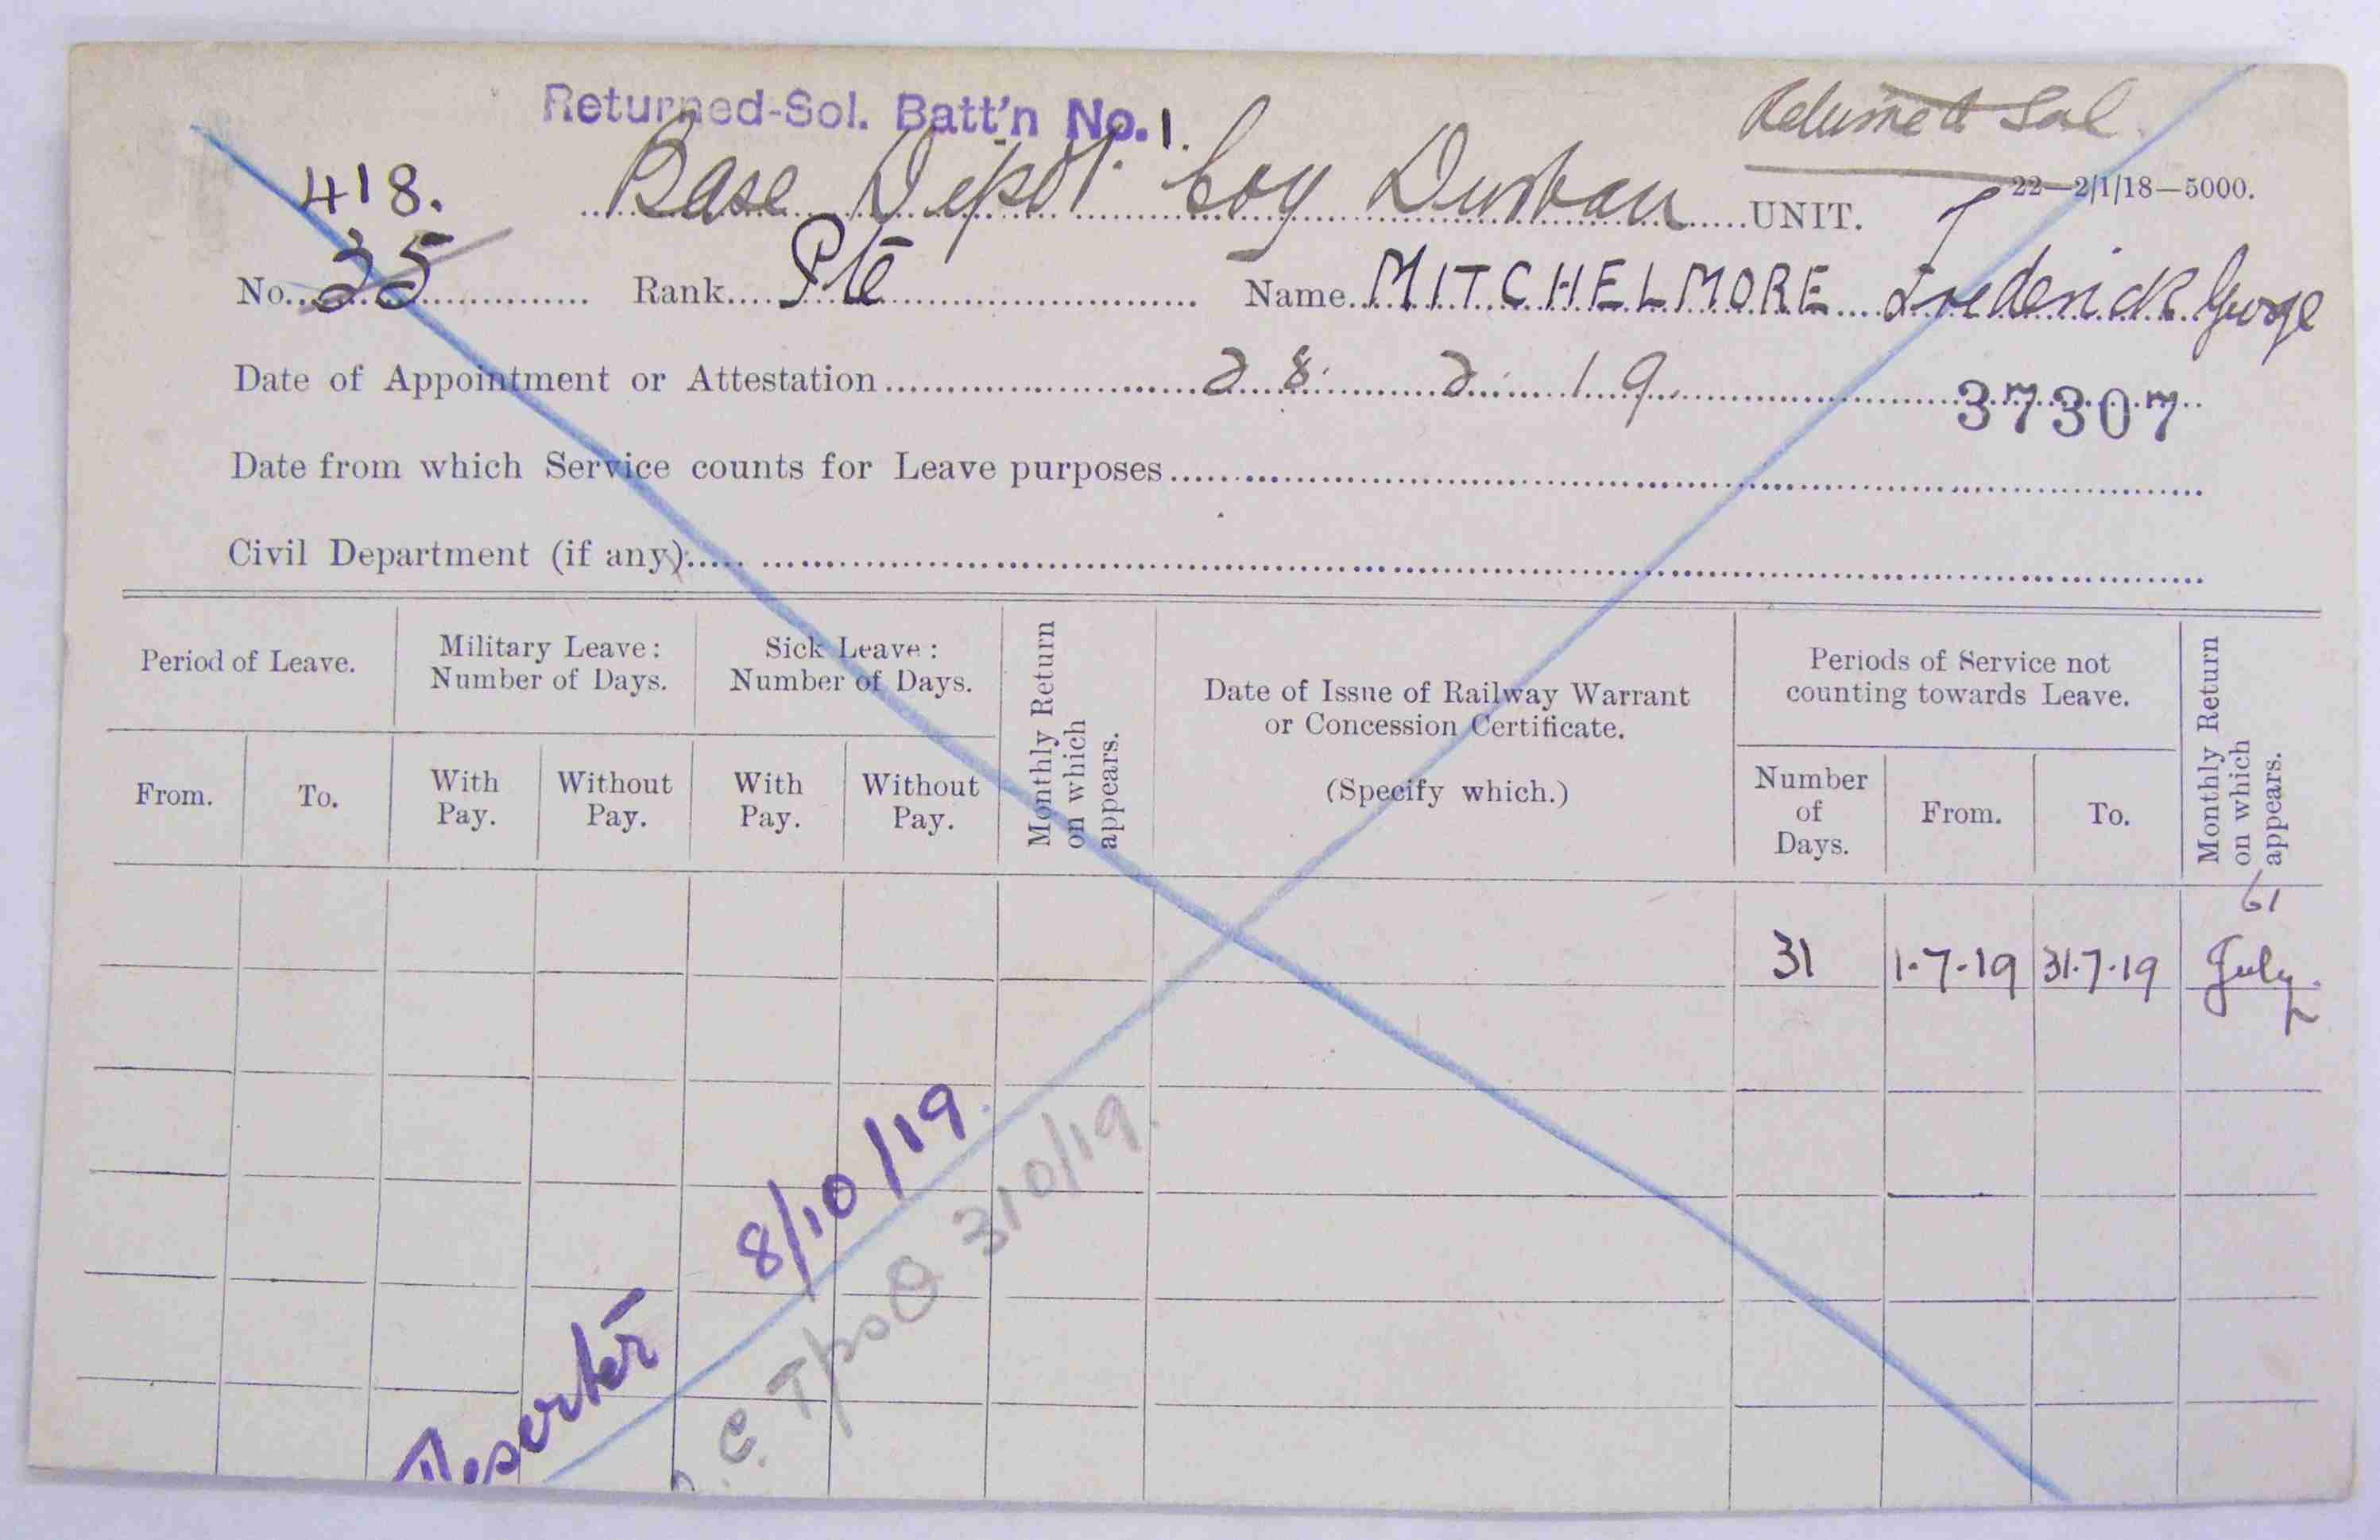 Returned-Sol. Batt'n No. 1.
Returned Sol.
418.
Base Depôt Coy Durban UNIT.
22—2/1/18—5000.
No. 35 Rank Pte Name MITCHELMORE Frederick George
Date of Appointment or Attestation 28. 2. 19.
37307
Date from which Service counts for Leave purposes
Civil Department (if any)
Period of Leave.
Military Leave:
Number of Days.
Sick Leave:
Number of Days.
Monthly Return
on which
appears.
Date of Issue of Railway Warrant
or Concession Certificate.
(Specify which.)
Periods of Service not
counting towards Leave.
Monthly Return
on which
appears.
From.
To.
With
Pay.
Without
Pay.
With
Pay.
Without
Pay.
Number
of
Days.
From.
To.
61
31 1.7.19 31.7.19 July
Deserter 8/10/19.
3/10/19.